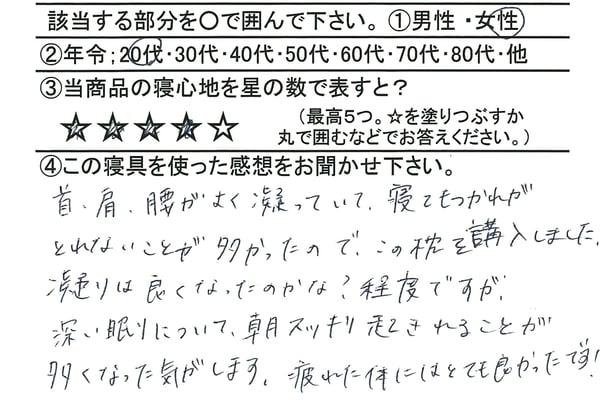 該当する部分を○で囲んで下さい。①男性・女性
②年令;20代・30代・40代・50代・60代・70代・80代・他
③当商品の寝心地を星の数で表すと?
★★★★☆
(最高5つ。☆を塗りつぶすか
丸で囲むなどでお答えください。)
④この寝具を使った感想をお聞かせ下さい。
首、肩、腰がよく凝っていて、寝てもつかれが
とれないことが多かったので、この枕を講入しました。
凝りは良くなったのかな?程度ですが、
深い眠りについて、朝スッキリ起きれることが
多くなった気がします。疲れた体にはとても良かったです!